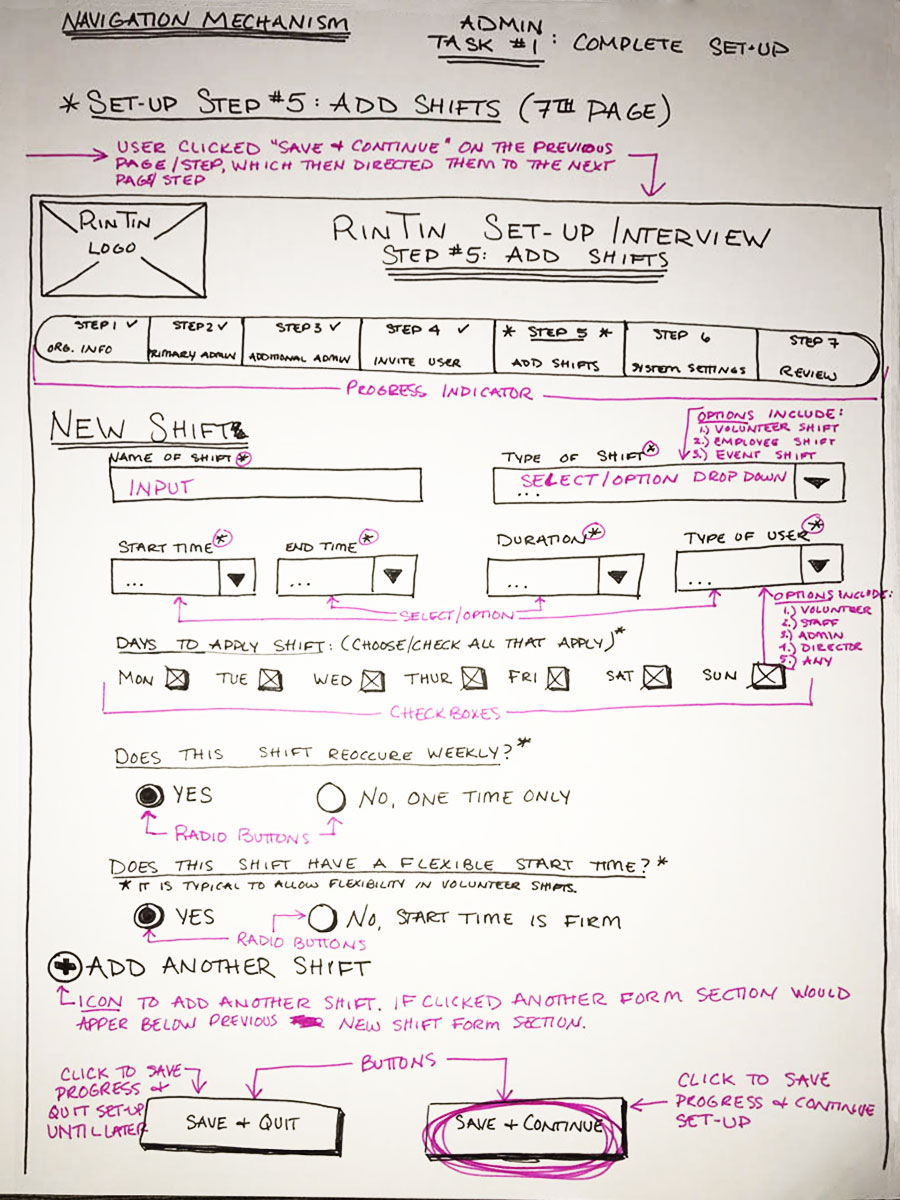 NAVIGATION MECHANISM
ADMIN
TASK #1: COMPLETE SET-UP
* SET-UP STEP #5: ADD SHIFTS (7TH PAGE)
USER CLICKED "SAVE + CONTINUE" ON THE PREVIOUS
PAGE/STEP, WHICH THEN DIRECTED THEM TO THE NEXT
PAGE/STEP
RINTIN
LOGO
RINTIN SET-UP INTERVIEW
STEP #5: ADD SHIFTS
STEP 1 ✓
ORG. INFO
STEP 2 ✓
PRIMARY ADMIN
STEP 3 ✓
ADDITIONAL ADMIN
STEP 4 ✓
INVITE USER
* STEP 5 *
ADD SHIFTS
STEP 6
SYSTEM SETTINGS
STEP 7
REVIEW
PROGRESS INDICATOR
NEW SHIFT
OPTIONS INCLUDE:
1.) VOLUNTEER SHIFT
2.) EMPLOYEE SHIFT
3.) EVENT SHIFT
NAME OF SHIFT *
INPUT
TYPE OF SHIFT *
SELECT/OPTION DROP DOWN
...
START TIME *
...
END TIME *
...
DURATION *
...
TYPE OF USER *
...
SELECT/OPTION
OPTIONS INCLUDE:
1.) VOLUNTEER
2.) STAFF
3.) ADMIN
4.) DIRECTOR
5.) ANY
DAYS TO APPLY SHIFT: (CHOOSE/CHECK ALL THAT APPLY)*
MON TUE WED THUR FRI SAT SUN
CHECKBOXES
DOES THIS SHIFT REOCCURE WEEKLY?*
YES NO, ONE TIME ONLY
RADIO BUTTONS
DOES THIS SHIFT HAVE A FLEXIBLE START TIME?*
* IT IS TYPICAL TO ALLOW FLEXIBILITY IN VOLUNTEER SHIFTS.
YES NO, START TIME IS FIRM
RADIO BUTTONS
+ ADD ANOTHER SHIFT
ICON TO ADD ANOTHER SHIFT. IF CLICKED ANOTHER FORM SECTION WOULD
APPER BELOW PREVIOUS NEW SHIFT FORM SECTION.
BUTTONS
CLICK TO SAVE
PROGRESS +
QUIT SET-UP
UNTIL LATER
SAVE + QUIT
SAVE + CONTINUE
CLICK TO SAVE
PROGRESS + CONTINUE
SET-UP